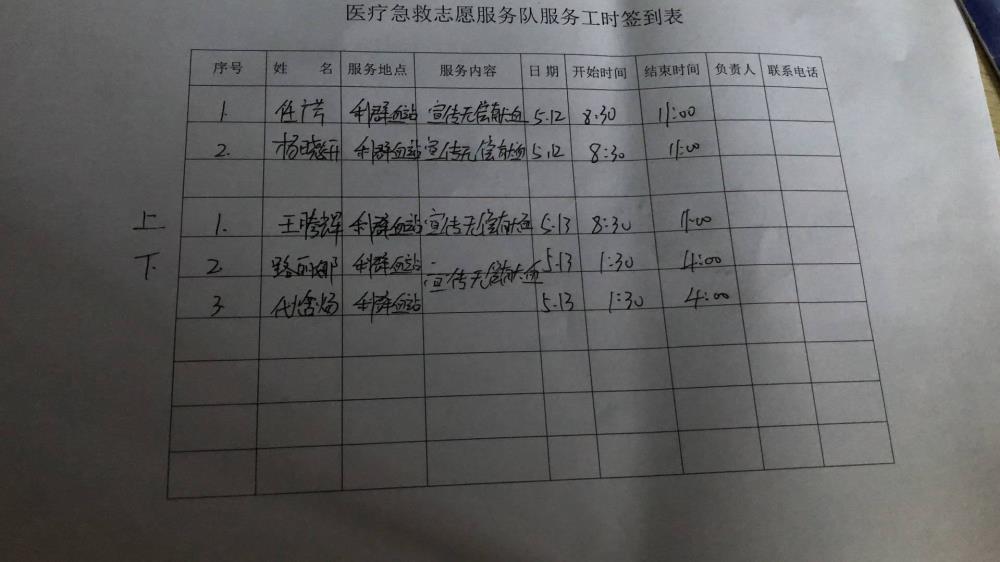 医疗急救志愿服务队服务工时签到表
序号 姓 名 服务地点 服务内容 日期 开始时间 结束时间 负责人 联系电话
1. 任芳 利群血站 宣传无偿献血 5.12 8:30 11:00
2. 杨晓妍 利群血站 宣传无偿献血 5.12 8:30 11:00
上 1. 王晓辉 利群血站 宣传无偿献血 5.13 8:30 11:00
下 2. 路丽娜 利群血站 宣传无偿献血 5.13 1:30 4:00
3. 利群血站 5.13 1:30 4:00